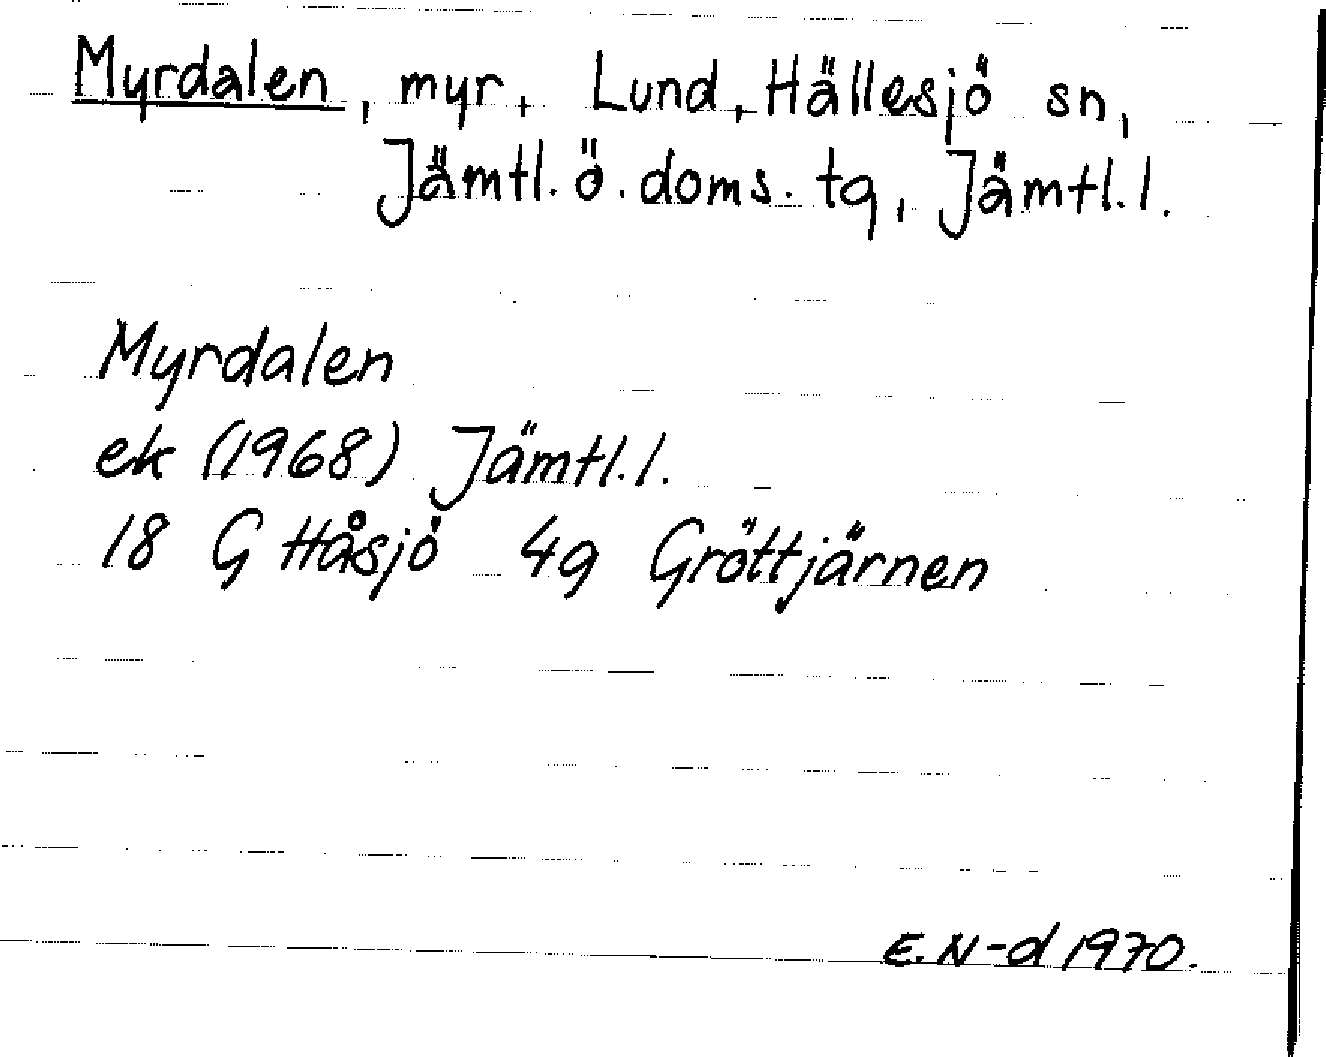 Myrdalen, myr, Lund, Hällesjö sn,
Jämtl. ö. doms. tg, Jämtl. l.
Myrdalen
ek (1968) Jämtl. l.
18 G Håsjö 4g Gröttjärnen
E. N-d 1970.